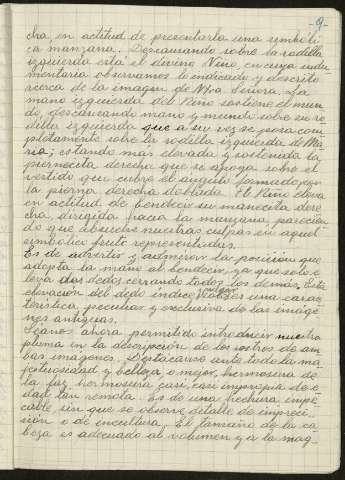 -9-
cha en actitud de presentarla una simbóli-
ca manzana. Descansando sobre la rodilla
izquierda está el divino Niño, en cuya indu-
mentaria observamos lo indicado y descrito
acerca de la imagen de Ntra Señora. La
mano izquierda del Niño sostiene el mun-
do, descansando mano y mundo sobre su ro-
dilla izquierda que a su vez se posa com-
pletamente sobre la rodilla izquierda de Ma-
ría; estando más elevada y sostenida la
piernecita derecha que se apoya sobre el
vestido que cubre el ángulo formado por
la pierna derecha de la El Niño eleva
en actitud de bendecir su manecita dere-
cha, dirigida hacia la manzana parecien-
do que absuelve nuestras culpas en aquel
simbólico fruto representadas.
Es de advertir y admirar la posición que
adopta la mano al bendecir, ya que solo e-
leva dos dedos cerrando todos los demás. Esta
elevación del dedo índice es una carac-
terística peculiar y exclusiva de las imáge-
nes antiguas.
Séanos ahora permitido introducir nuestra
pluma en la descripción de los rostros de am-
bas imágenes. Destácase ante todo la ma-
jestuosidad y belleza, o mejor, hermosura de
la faz, hermosura casi, casi impropia de e-
dad tan remota. Es de una hechura impe-
cable, sin que se observe detalle de impreci-
sión o de incultura. El tamaño de la ca-
beza es adecuado al volumen y a la mag-